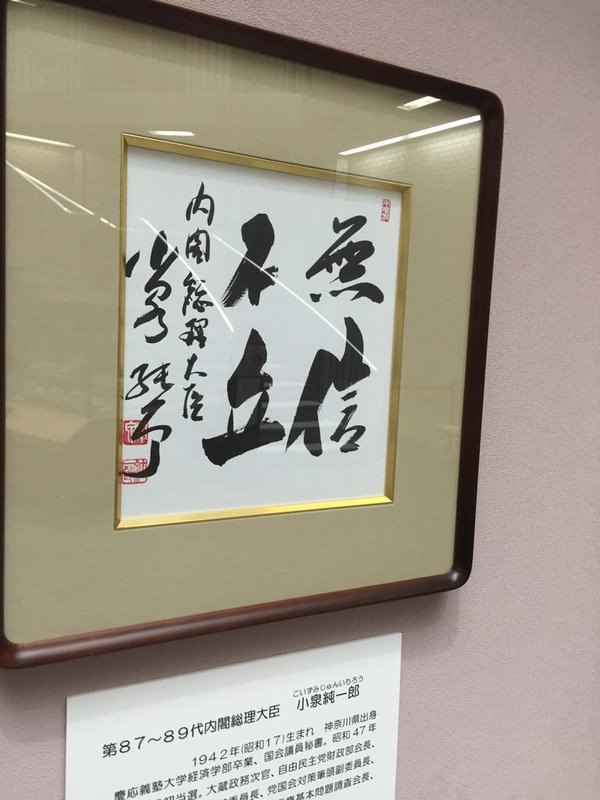 無信
不立
内閣総理大臣
小泉純一郎
こいずみじゅんいちろう
第87～89代内閣総理大臣 小泉純一郎
1942年(昭和17)生まれ 神奈川県出身
慶応義塾大学経済学部卒業、国会議員秘書。昭和47年
初当選。大蔵政務次官、自由民主党財政部会長、
委員長、党国会対策筆頭副委員長、
基本問題調査会長、